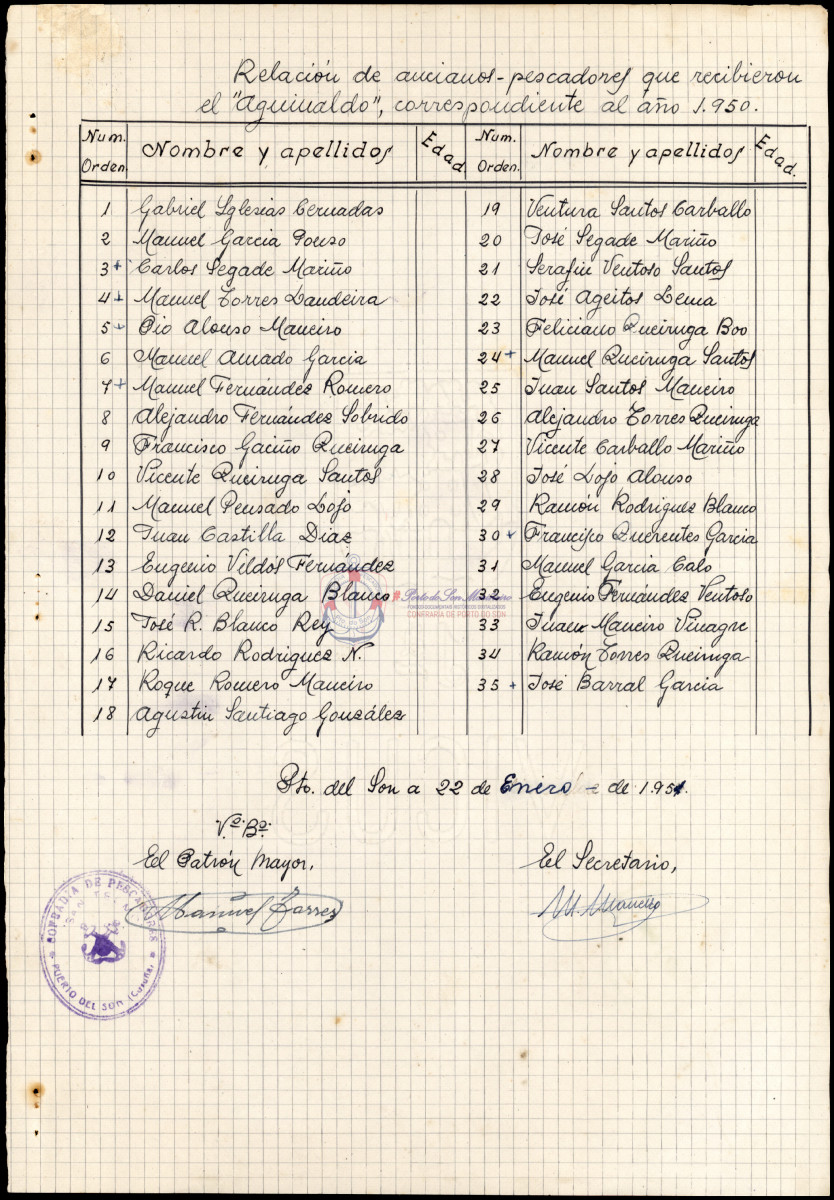 Relación de ancianos-pescadores que recibieron
el "Aguinaldo", correspondiente al año 1.950.
Num. Orden. Nombre y apellidos Edad. Num. Orden. Nombre y apellidos Edad.
1 Gabriel Iglesias Cernadas
2 Manuel Garcia Pouso
3 + Carlos Segade Mariño
4 + Manuel Torres Landeira
5 + Pio Alonso Maneiro
6 Manuel Amado Garcia
7 + Manuel Fernández Romero
8 Alejandro Fernández Sobrido
9 Francisco Gaciño Queiruga
10 Vicente Queiruga Santos
11 Manuel Pensado Lojo
12 Juan Castilla Diaz
13 Eugenio Vildós Fernández
14 Daniel Queiruga Blanco
15 José R. Blanco Rey
16 Ricardo Rodriguez N.
17 Roque Romero Maneiro
18 Agustin Santiago González
19 Ventura Santos Carballo
20 José Segade Mariño
21 Serafin Ventoso Santos
22 José Ageitos Lema
23 Feliciano Queiruga Boo
24 + Manuel Queiruga Santos
25 Juan Santos Maneiro
26 Alejandro Torres Queiruga
27 Vicente Carballo Mariño
28 José Lojo Alonso
29 Ramón Rodriguez Blanco
30 + Francisco Querentes Garcia
31 Manuel Garcia Calo
32 Eugenio Fernández Ventoso
33 Juan Maneiro Vinagre
34 Ramón Torres Queiruga
35 + José Barral Garcia
Porto do Son Mariñeiro
FONDOS DOCUMENTAIS HISTÓRICOS DIXITALIZADOS
CONFRARÍA DE PORTO DO SON
Pto. del Son a 22 de Enero de 1.951.
Vº. Bº.
El Patrón Mayor,
El Secretario,
Manuel Torres
M. Maneiro
COFRADIA DE PESCADORES
PUERTO DEL SON (Coruña)